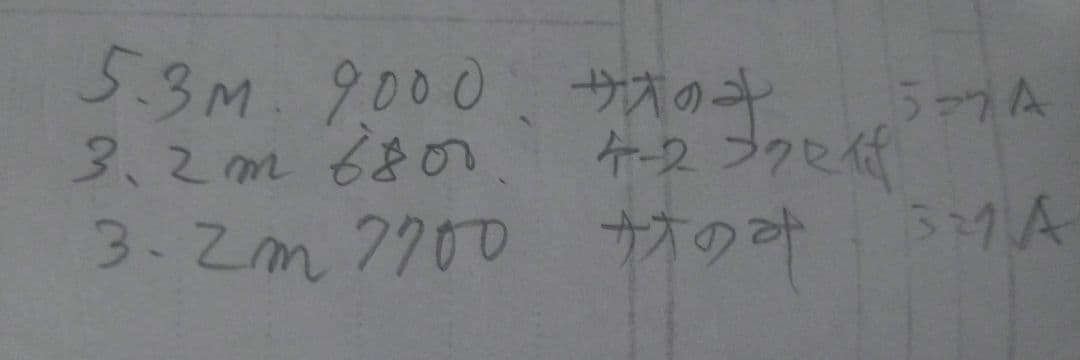 5.3M. 9000、 サオのみ ランクA
3、2m 6800. ケース フクロ付
3.2m 7700 サオのみ ランクA